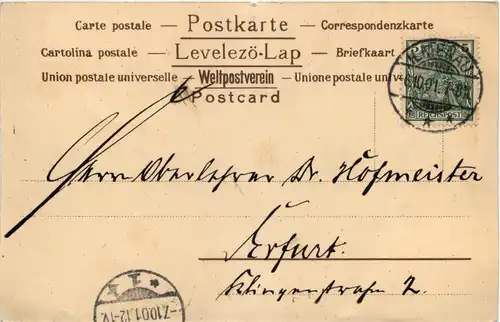 Carte postale – Postkarte – Correspondenzkarte
Cartolina postale – Levelező-Lap – Briefkaart
Union postale universelle – Weltpostverein – Unione postale
Postcard
5 5
REICHSPOST
10.01.
Herrn Oberlehrer Dr. Hofmeister
Erfurt.
Klingenstrasse 2.
-7.10.01.12-1V.